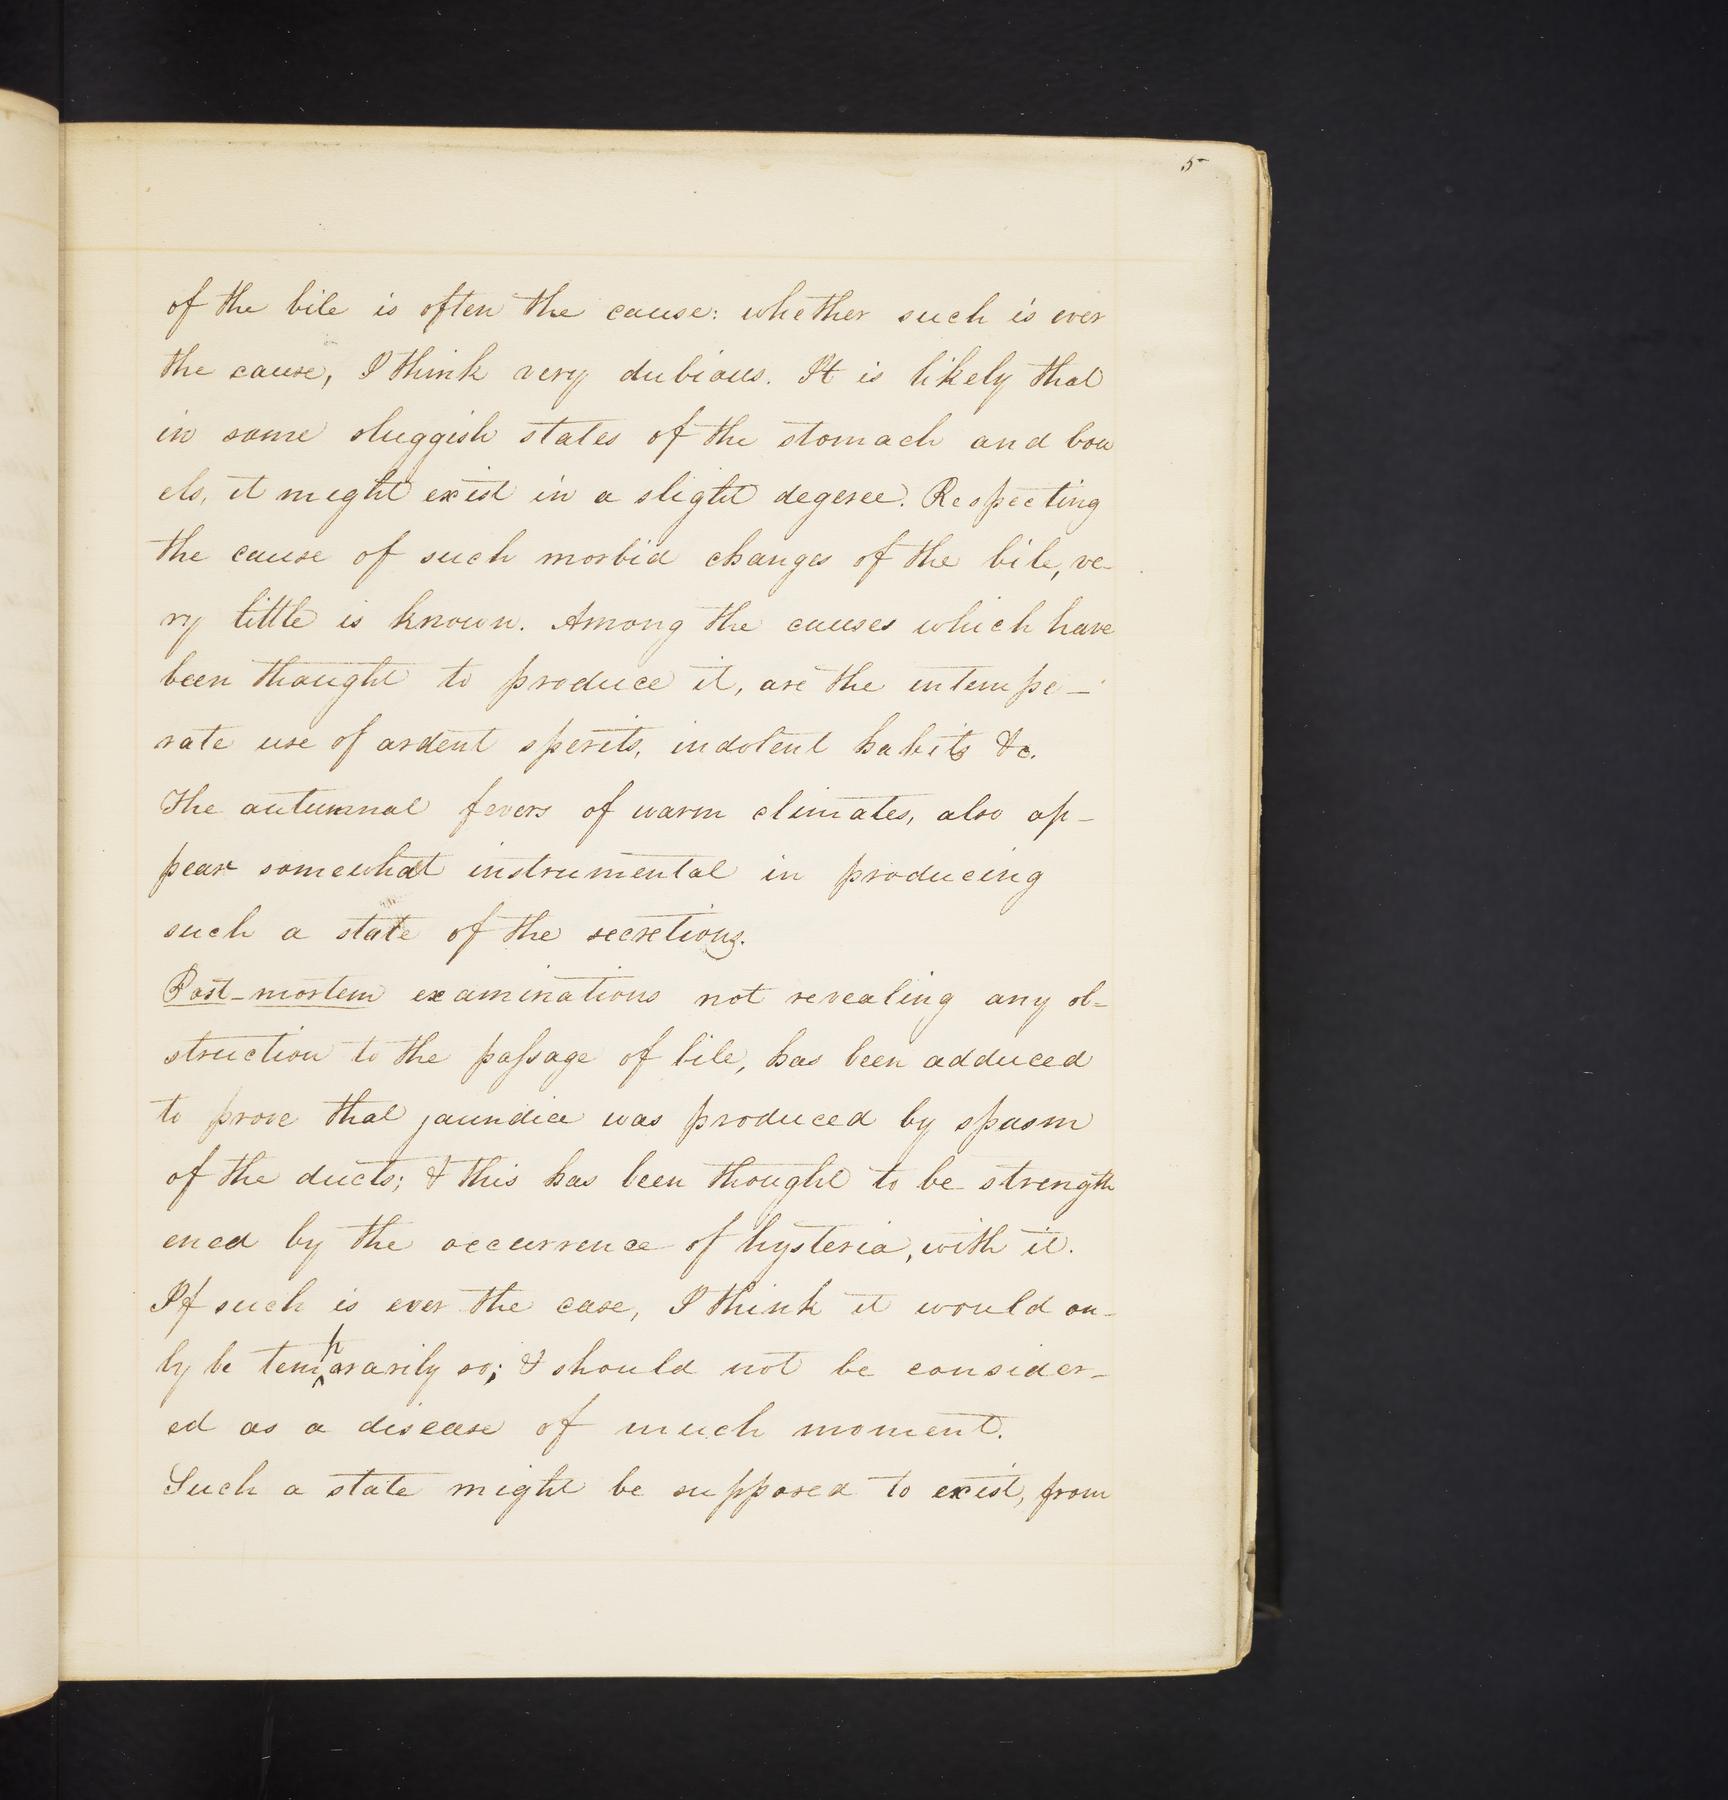 5
of the bile is often the cause: whether such is ever
the cause, I think very dubious. It is likely that
in some sluggish states of the stomach and bow
els, it might exist in a slight degeree. Respecting
the cause of such morbid changes of the bile, ve-
ry little is known. Among the causes which have
been thought to produce it, are the intempe-
rate use of ardent sperits, indolent habits &c.
The autumnal fevers of warm climates, also ap-
pear somewhat instrumental in producing
such a state of the secretions.
Post-mortem examinations not revealing any ob-
struction to the passage of bile, has been adduced
to prove that jaundice was produced by spasm
of the ducts; & this has been thought to be strength
ened by the occurrence of hysteria, with it.
If such is ever the case, I think it would on-
ly be temporarily so; & should not be consider-
ed as a disease of much moment.
Such a state might be supposed to exist, from